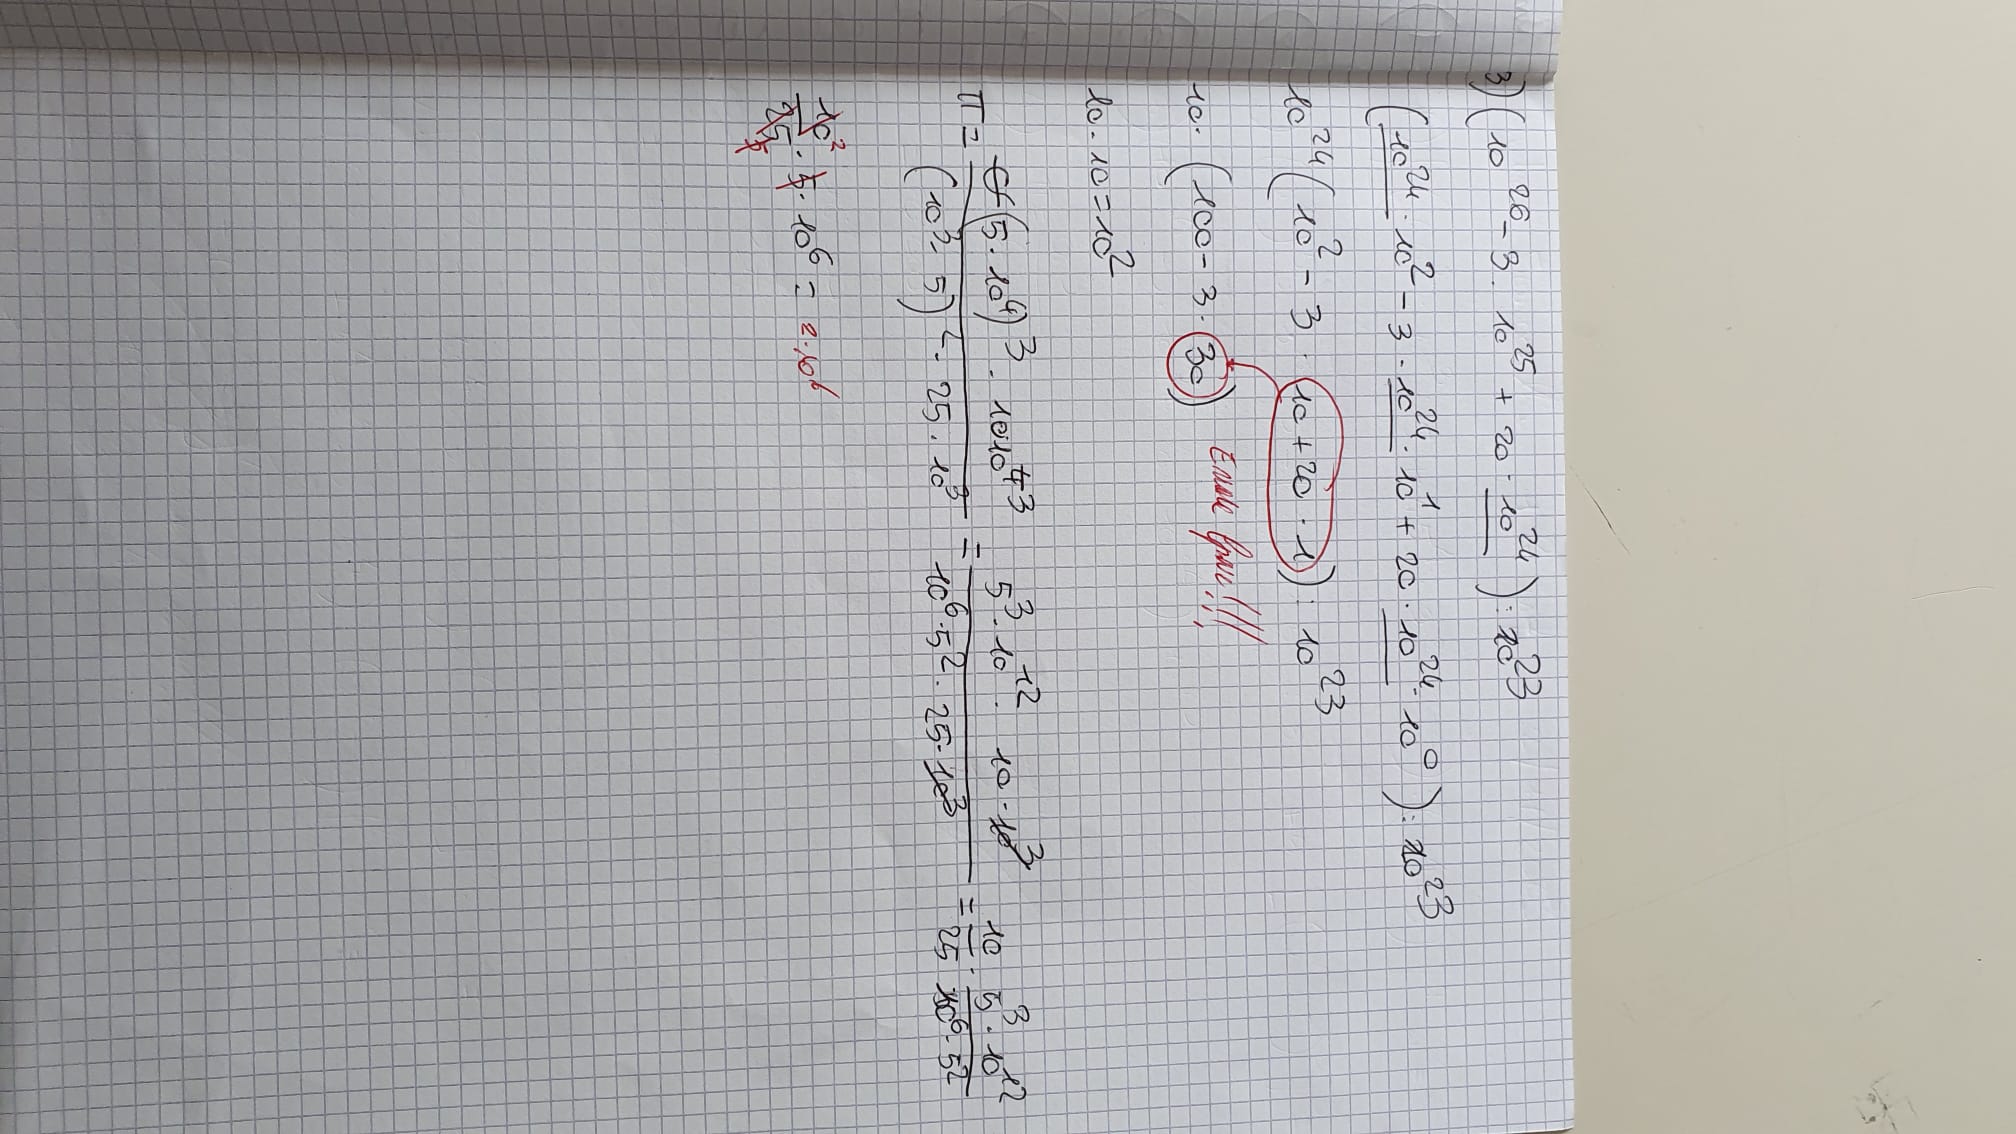 3) (10^26 - 3 · 10^25 + 20 · 10^24) : 10^23
(10^24 · 10^2 - 3 · 10^24 · 10^1 + 20 · 10^24 · 10^0) : 10^23
10^24 (10^2 - 3 · 10 + 20 · 1) : 10^23
10 · (100 - 3 · 30)
10 · 10 = 10^2
π = (5 · 10^4)^3 · 1010^+3 / (10^3 · 5)^2 · 25 · 10^3 = 5^3 · 10^12 · 10 · 10^3 / 10^6 · 5^2 · 25 · 10^3 = 10/25 · 5^3 · 10^12 / 10^6 · 5^2
10^2/25 5 · 5 · 10^6 = 2 · 10^6